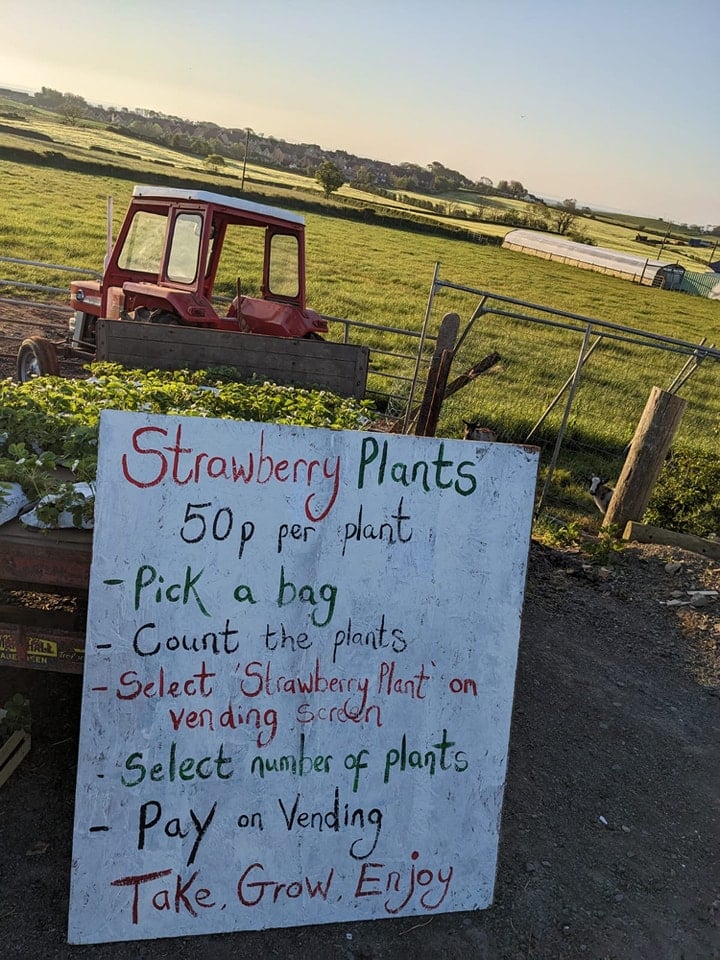 Strawberry Plants
50p per plant
- Pick a bag
- Count the plants
- Select 'Strawberry Plant' on
vending screen
- Select number of plants
- Pay on Vending
Take. Grow. Enjoy